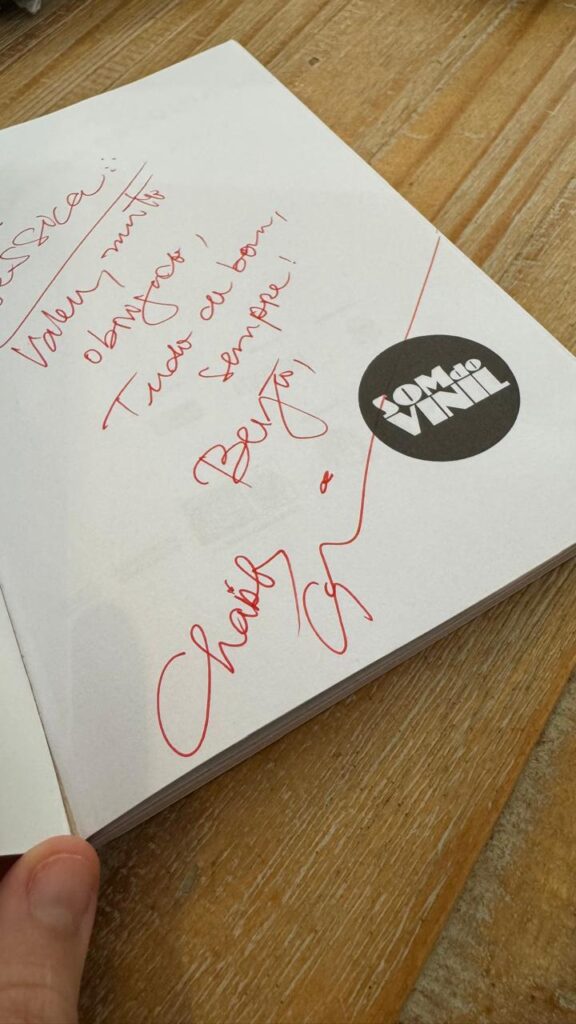 Jéssica:
Valeu, muito
obrigado,
Tudo de bom,
sempre!
Beijão,
Charles
SOM DO
VINIL